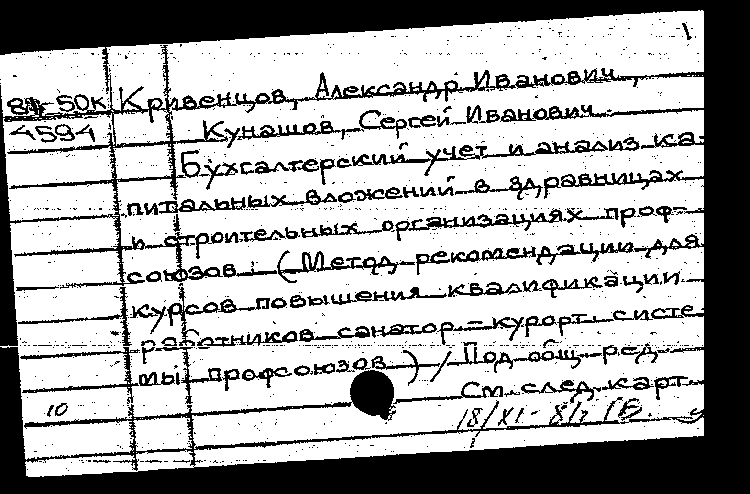 1
Кривенцов, Александр Иванович,
50К
4594 Кунашов, Сергей Иванович.
Бухгалтерский учет и анализ ка-
питальных вложений в здравницах
и строительных организациях проф-
союзов : (Метод. рекомендации для
курсов повышения квалификации
работников санатор.-курорт. систе
мы профсоюзов) / Под общ. ред.
См. след. карт.
10 18/XI-